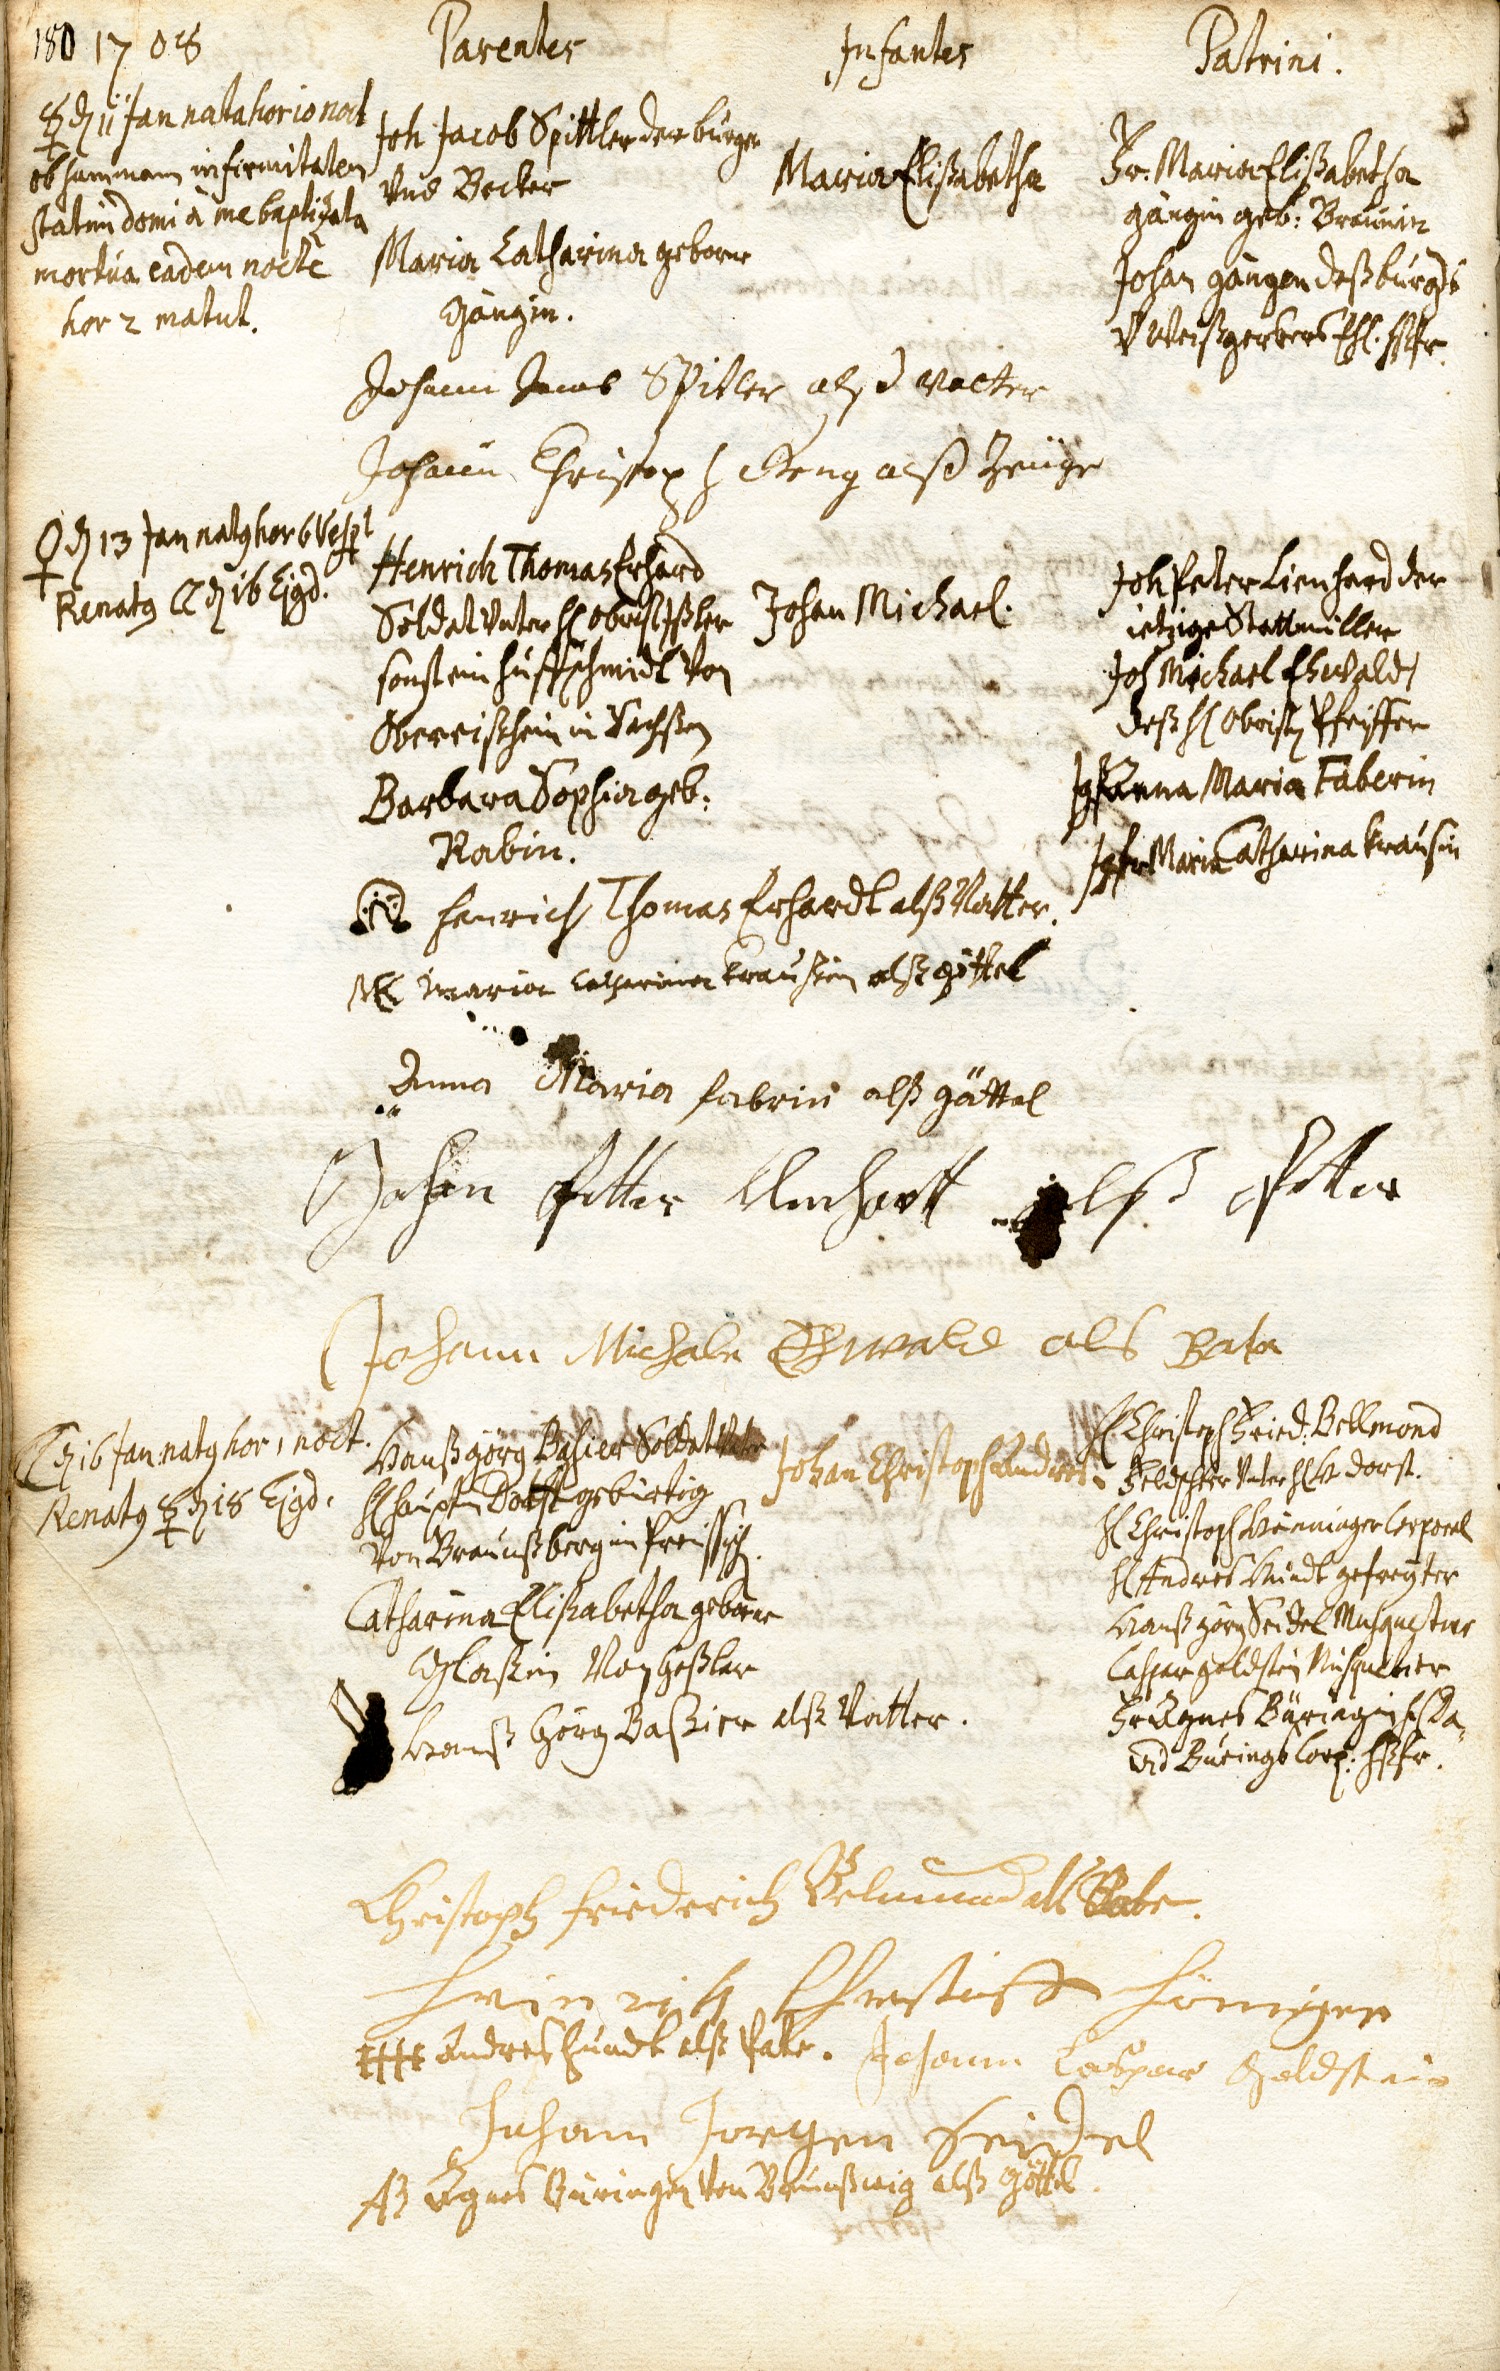 180 1708 Parentes Infantes Patrini.
☿ d 11 Jan nata hor 10 noct
ob summam infirmitatem
statim domi à me baptizata
mortua eadem nocte
hor 2 matut.
Joh Jacob Spittler der burger
Vnd Becker
Maria Catharina geborne
Gängin.
Maria Elißabetha
Fr. Maria Elißabetha
gängin geb: Braunin
Johan gängen deß burgs
V Weißgerbers Ehl. Hßfr.
Johann Jacob Spitler alß Vatter
Johann Christoph alß Zeüge
♀ d 13 Jan natg hor 6 Vesp
Renatg ☾ d 16 Ejgd.
Henrich Thomas Erhard
Soldat Vnter H Obrist Ißler
sonst ein huffschmidt Von
in Sachßen
Barbara Sophia geb:
Rabin.
Johan Michael.
Joh Peter Lienhard der
ietzige Stattmüller
Joh Michael Ehwald
deß H Obristen Pfeiffer
Jgfr Anna Maria Faberin
Jgfr Maria Catharina Krausin
Henrich Thomas Erhardt alß Vatter.
Maria Catharina Kraußin alß göttel
Anna Maria fabrin alß göttel
Johan Petter Lienhartt alß Petter
Johann Michale Ehwald als Pate
☾ d 16 Jan natg hor 1 noct.
Renatg ☿ d 18 Ejgd.
Hanß görg Baßier Soldat Vnter
H haupt. Dorst gebürtig
Von Braunßberg in Preissisch.
Catharina Elißabetha geborne
Glaßin Von Geßlar
Johan Christoph Andres.
H Christoph Fried: Bellmond
Feldscher Vnter H V Dorst.
H Christoph Hönninger Corporal
H Andres Hundt gefreyter
Hanß görg Seidel Musquetier
Caspar goldstein Musquetier
Fr Agnes Büringin H Da-
vid Bürings Corp: Hßfr.
Hanß Görg Baßier alß Vatter.
Christoph Friederich Belmund als Pate.
Heinrich Christoff Höniger
Andres Hundt alß Pate. Johann Caspar Goldstein
Johann Jorgen Seidel
Agnes Büringen Von Braunßwig alß Göttel.